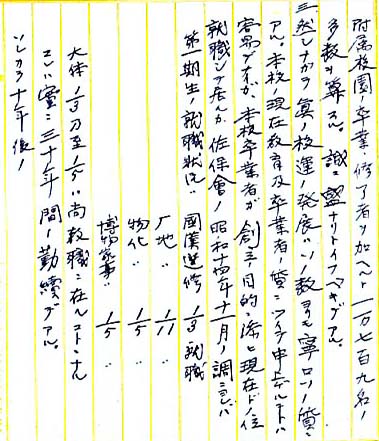 附属校園ノ卒業修了者ヲ加ヘルト一万七百九名ノ
多数ヲ算スル。誠ニ盛ナリトイフベキデアル。
三、然シナガラ真ノ校運ノ発展ハソノ数ヨリモ寧ロソノ質ニ
アル。本校ノ現在教育及卒業者ノ質ニツイテ申上ゲルコトハ
容易デナイガ、本校卒業者ガ創立ノ目的ニ添ヒ現在ドノ位
就職シテ居ルカ佐保會ノ昭和十四年十一月ノ調ニヨレバ
第一期生ノ就職状況ハ 國漢選修 1/3 就職
〃地〃 1/11 〃
物化〃 1/5 〃
博物家事〃 1/5 〃
大体1/3乃至1/5ハ尚教職ニ在ルコトトナル
コレハ實ニ三十年間ノ勤続デアル。
ソレカラ十年後ノ